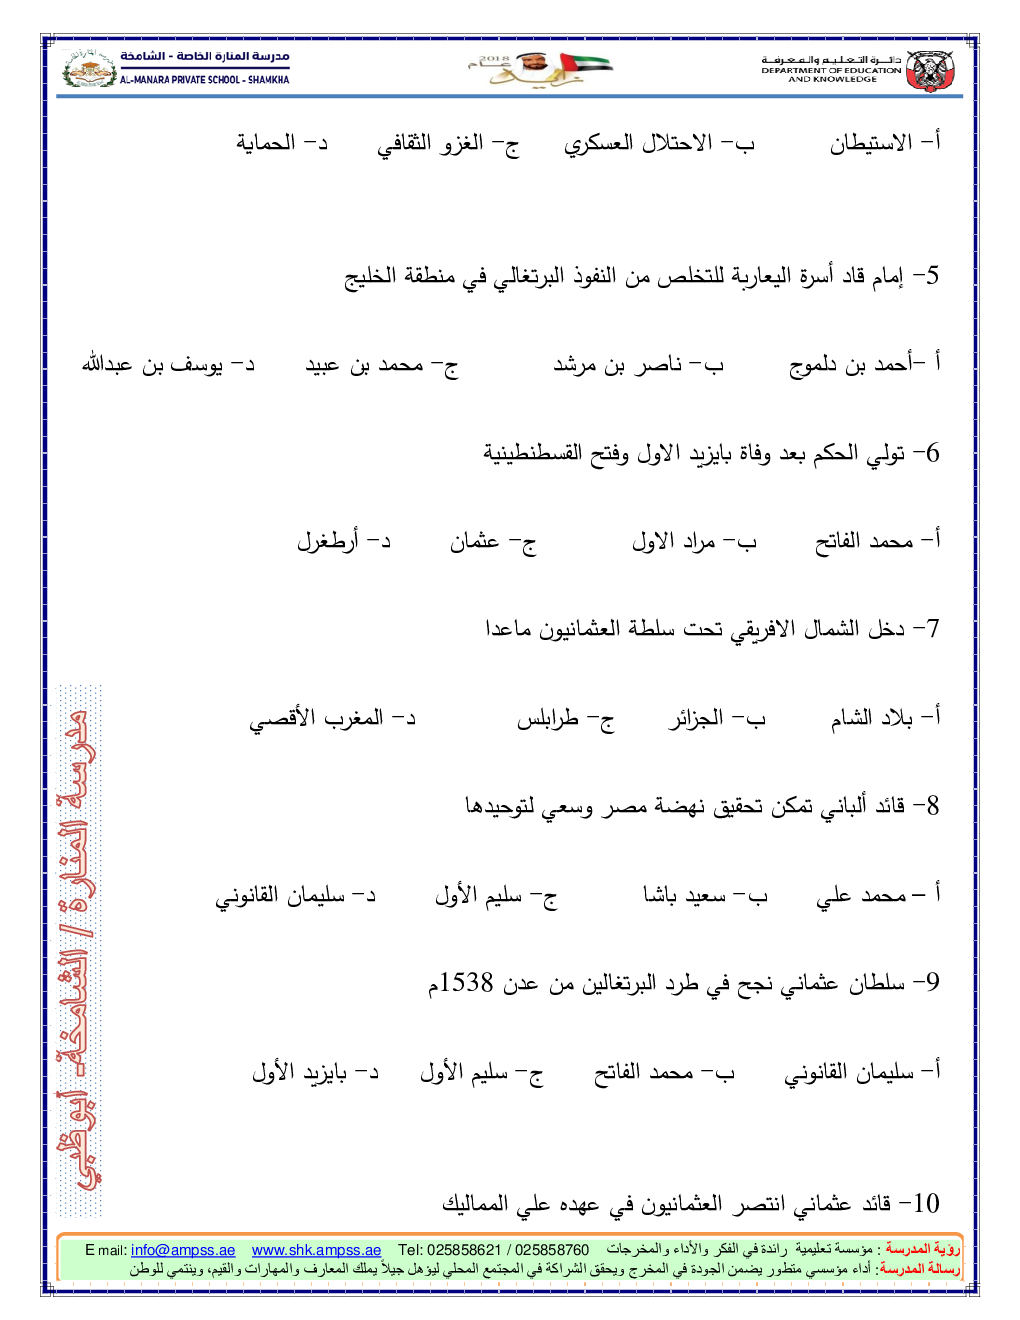 مدرسة المنارة الخاصة - الشامخة
AL-MANARA PRIVATE SCHOOL - SHAMKHA
2018
عام
زايد
دائرة التعليم والمعرفة
DEPARTMENT OF EDUCATION
AND KNOWLEDGE
أ- الاستيطان ب- الاحتلال العسكري ج- الغزو الثقافي د- الحماية
5- إمام قاد أسرة اليعاربة للتخلص من النفوذ البرتغالي في منطقة الخليج
أ -أحمد بن دلموج ب- ناصر بن مرشد ج- محمد بن عبيد د- يوسف بن عبدالله
6- تولي الحكم بعد وفاة بايزيد الاول وفتح القسطنطينية
أ- محمد الفاتح ب- مراد الاول ج- عثمان د- أرطغرل
7- دخل الشمال الافريقي تحت سلطة العثمانيون ماعدا
أ- بلاد الشام ب- الجزائر ج- طرابلس د- المغرب الأقصي
8- قائد ألباني تمكن تحقيق نهضة مصر وسعي لتوحيدها
أ – محمد علي ب- سعيد باشا ج- سليم الأول د- سليمان القانوني
9- سلطان عثماني نجح في طرد البرتغالين من عدن 1538م
أ- سليمان القانوني ب- محمد الفاتح ج- سليم الأول د- بايزيد الأول
10- قائد عثماني انتصر العثمانيون في عهده علي المماليك
مدرسة المنارة / الشامخة- أبوظبي
رؤية المدرسة : مؤسسة تعليمية رائدة في الفكر والأداء والمخرجات Tel: 025858621 / 025858760 www.shk.ampss.ae E mail: info@ampss.ae
رسالة المدرسة: أداء مؤسسي متطور يضمن الجودة في المخرج ويحقق الشراكة في المجتمع المحلي ليؤهل جيلاً يملك المعارف والمهارات والقيم، وينتمي للوطن